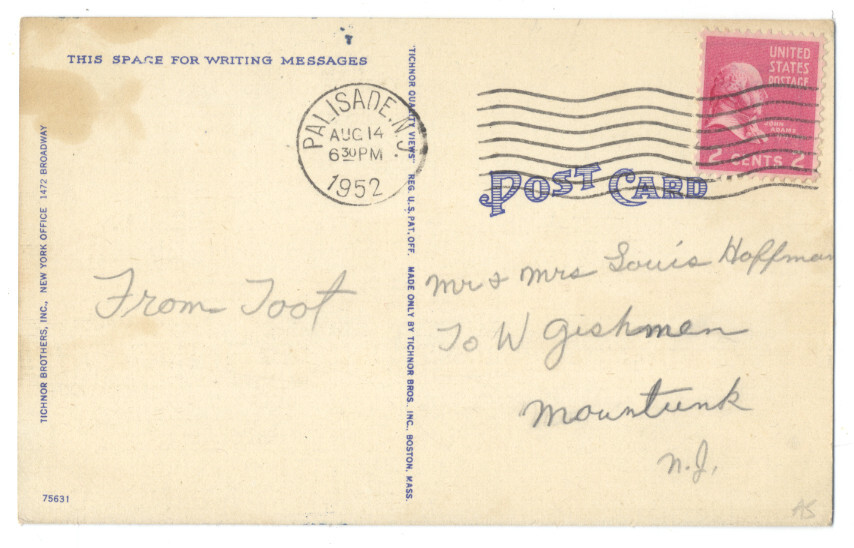 THIS SPACE FOR WRITING MESSAGES
PALISADE, N.J.
AUG 14
6 30 PM
1952
UNITED
STATES
POSTAGE
JOHN
ADAMS
2 CENTS 2
POST CARD
From Toot
Mr & Mrs Louis Hoffman
To W Gishman
Mountunk
N.J.
TICHNOR BROTHERS, INC., NEW YORK OFFICE 1472 BROADWAY
"TICHNOR QUALITY VIEWS" REG. U. S. PAT. OFF. MADE ONLY BY TICHNOR BROS. INC., BOSTON, MASS.
75631
AS